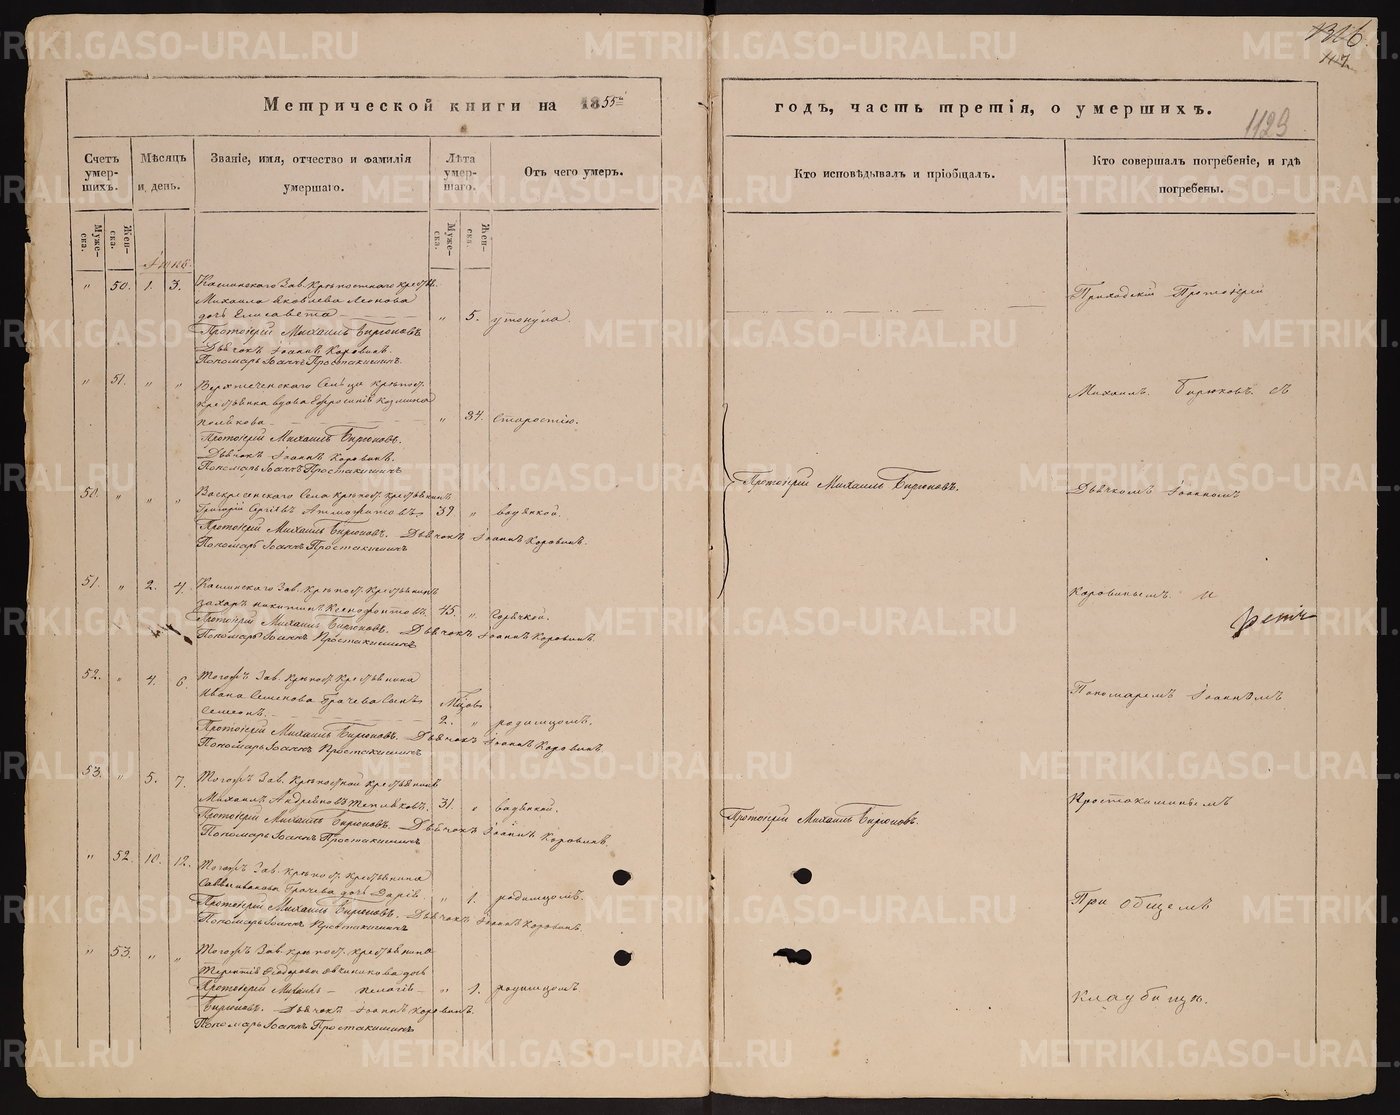 1326
47.
1123
Метрической книги на 1855й
годъ, часть третія, о умершихъ.
Счетъ умер-шихъ.
Мѣсяцъ и день.
Званіе, имя, отчество и фамилія умершаго.
Лѣта умер-шаго.
Отъ чего умеръ.
Кто исповѣдывалъ и пріобщалъ.
Кто совершалъ погребеніе, и гдѣ погребены.
Муже-ска.
Жен-ска.
Муже-ска.
Жен-ска.
" 50. 1. 3. Каслинскаго Зав. Крѣпостнаго
Михаила Яковлева Леонова
дочь Елисавета " 5. утонула.
Протоіерей Михаилъ Бирюковъ
Дьячокъ Іоаннъ Коровинъ.
Пономарь Іоаннъ Простакишинъ.
" 51. " " Крѣпост.
вдова Ефросинія Козмина
" 84. Старостію.
Протоіерей Михаилъ Бирюковъ.
Дьячокъ Іоаннъ Коровинъ.
Пономарь Іоаннъ Простакишинъ
50. " " " Воскресенскаго Села Крѣпост. крестьянинъ
Григорій Сергѣевъ 39 " водянкой.
Протоіерей Михаилъ Бирюковъ. Дьячокъ Іоаннъ Коровинъ.
Пономарь Іоаннъ Простакишинъ
51. " 2. 4. Каслинскаго Зав. Крѣпост. Крестьянинъ
Захаръ Никитинъ Ксенофонтовъ. 45. " Горячкой.
Протоіерей Михаилъ Бирюковъ. Дьячокъ Іоаннъ Коровинъ.
Пономарь Іоаннъ Простакишинъ
52. " 4. 6. Тогожъ Зав. Крѣпост. Крестьянина
Ивана Семенова Грачева Сынъ
Семеонъ. 2. " родимцомъ.
Протоіерей Михаилъ Бирюковъ. Дьячокъ Іоаннъ Коровинъ
Пономарь Іоаннъ Простакишинъ
53. " 5. 7. Тогожъ Зав. Крѣпостной крестьянинъ
Михаилъ Андреевъ 31. " водянкой.
Протоіерей Михаилъ Бирюковъ. Дьячокъ Іоаннъ Коровинъ
Пономарь Іоаннъ Простакишинъ
" 52. 10. 12. Тогожъ Зав. Крѣпост. Крестьянина
Саввы Иванова Грачева дочь Дарія " 1. родимцомъ.
Протоіерей Михаилъ Бирюковъ. Дьячокъ Іоаннъ Коровинъ
Пономарь Іоаннъ Простакишинъ
" 53. " " Тогожъ Зав. крѣпост. крестьянина
Терентія Ѳеодорова Овчинникова дочь
Протоіерей Михаилъ Пелагія " 1. родимцомъ
Бирюковъ. Дьячокъ Іоаннъ Коровинъ.
Пономарь Іоаннъ Простакишинъ
Протоіерей Михаилъ Бирюковъ.
Протоіерей Михаилъ Бирюковъ.
Приходскій Протоіерей
Михаилъ Бирюковъ съ
Дьячкомъ Іоанномъ
Коровинымъ и
Пономаремъ Іоанномъ
Простакишинымъ
При общемъ
кладбищѣ.
METRIKI.GASO-URAL.RU